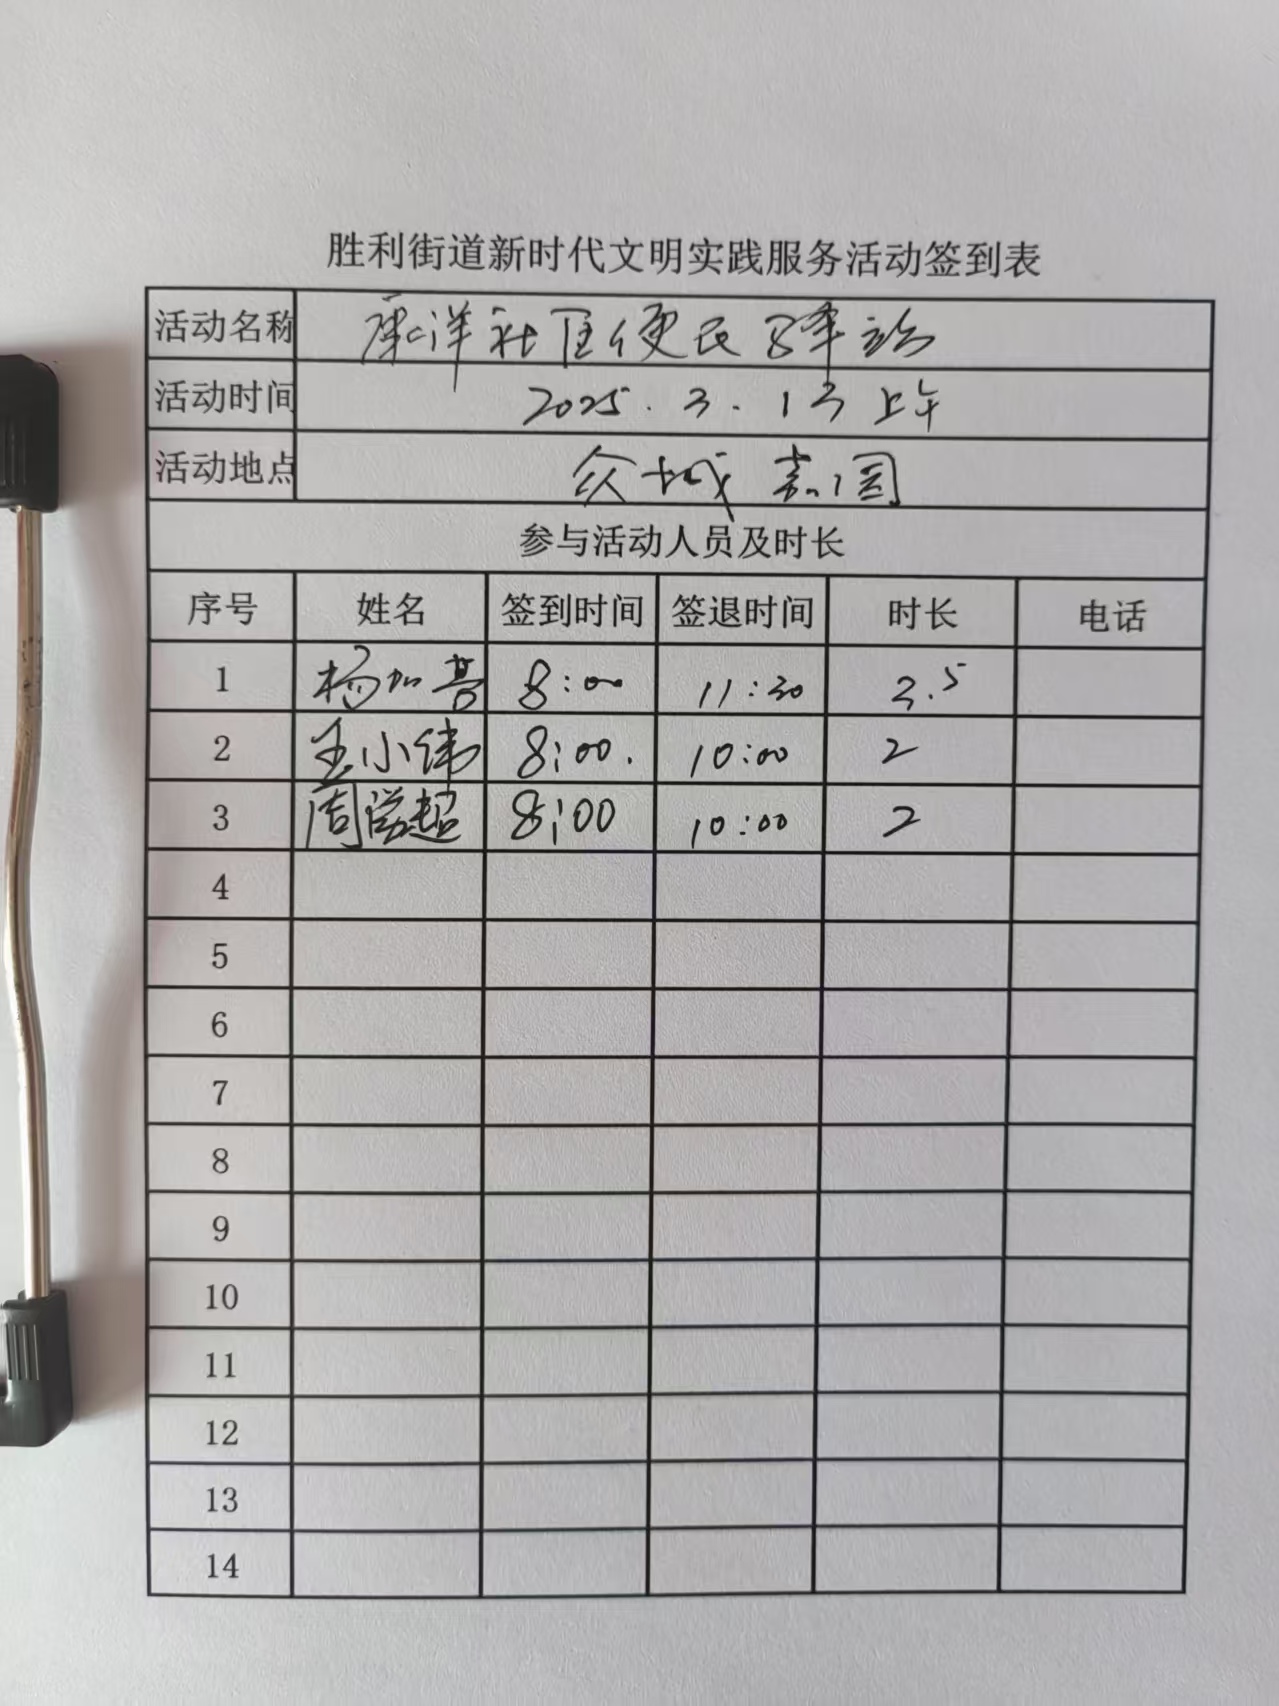 胜利街道新时代文明实践服务活动签到表
活动名称 康洋社区便民驿站
活动时间 2025.3.13上午
活动地点 众城嘉园
参与活动人员及时长
序号 姓名 签到时间 签退时间 时长 电话
1 杨加 8:00 11:30 3.5
2 王小伟 8:00. 10:00 2
3 周学超 8:00 10:00 2
4
5
6
7
8
9
10
11
12
13
14